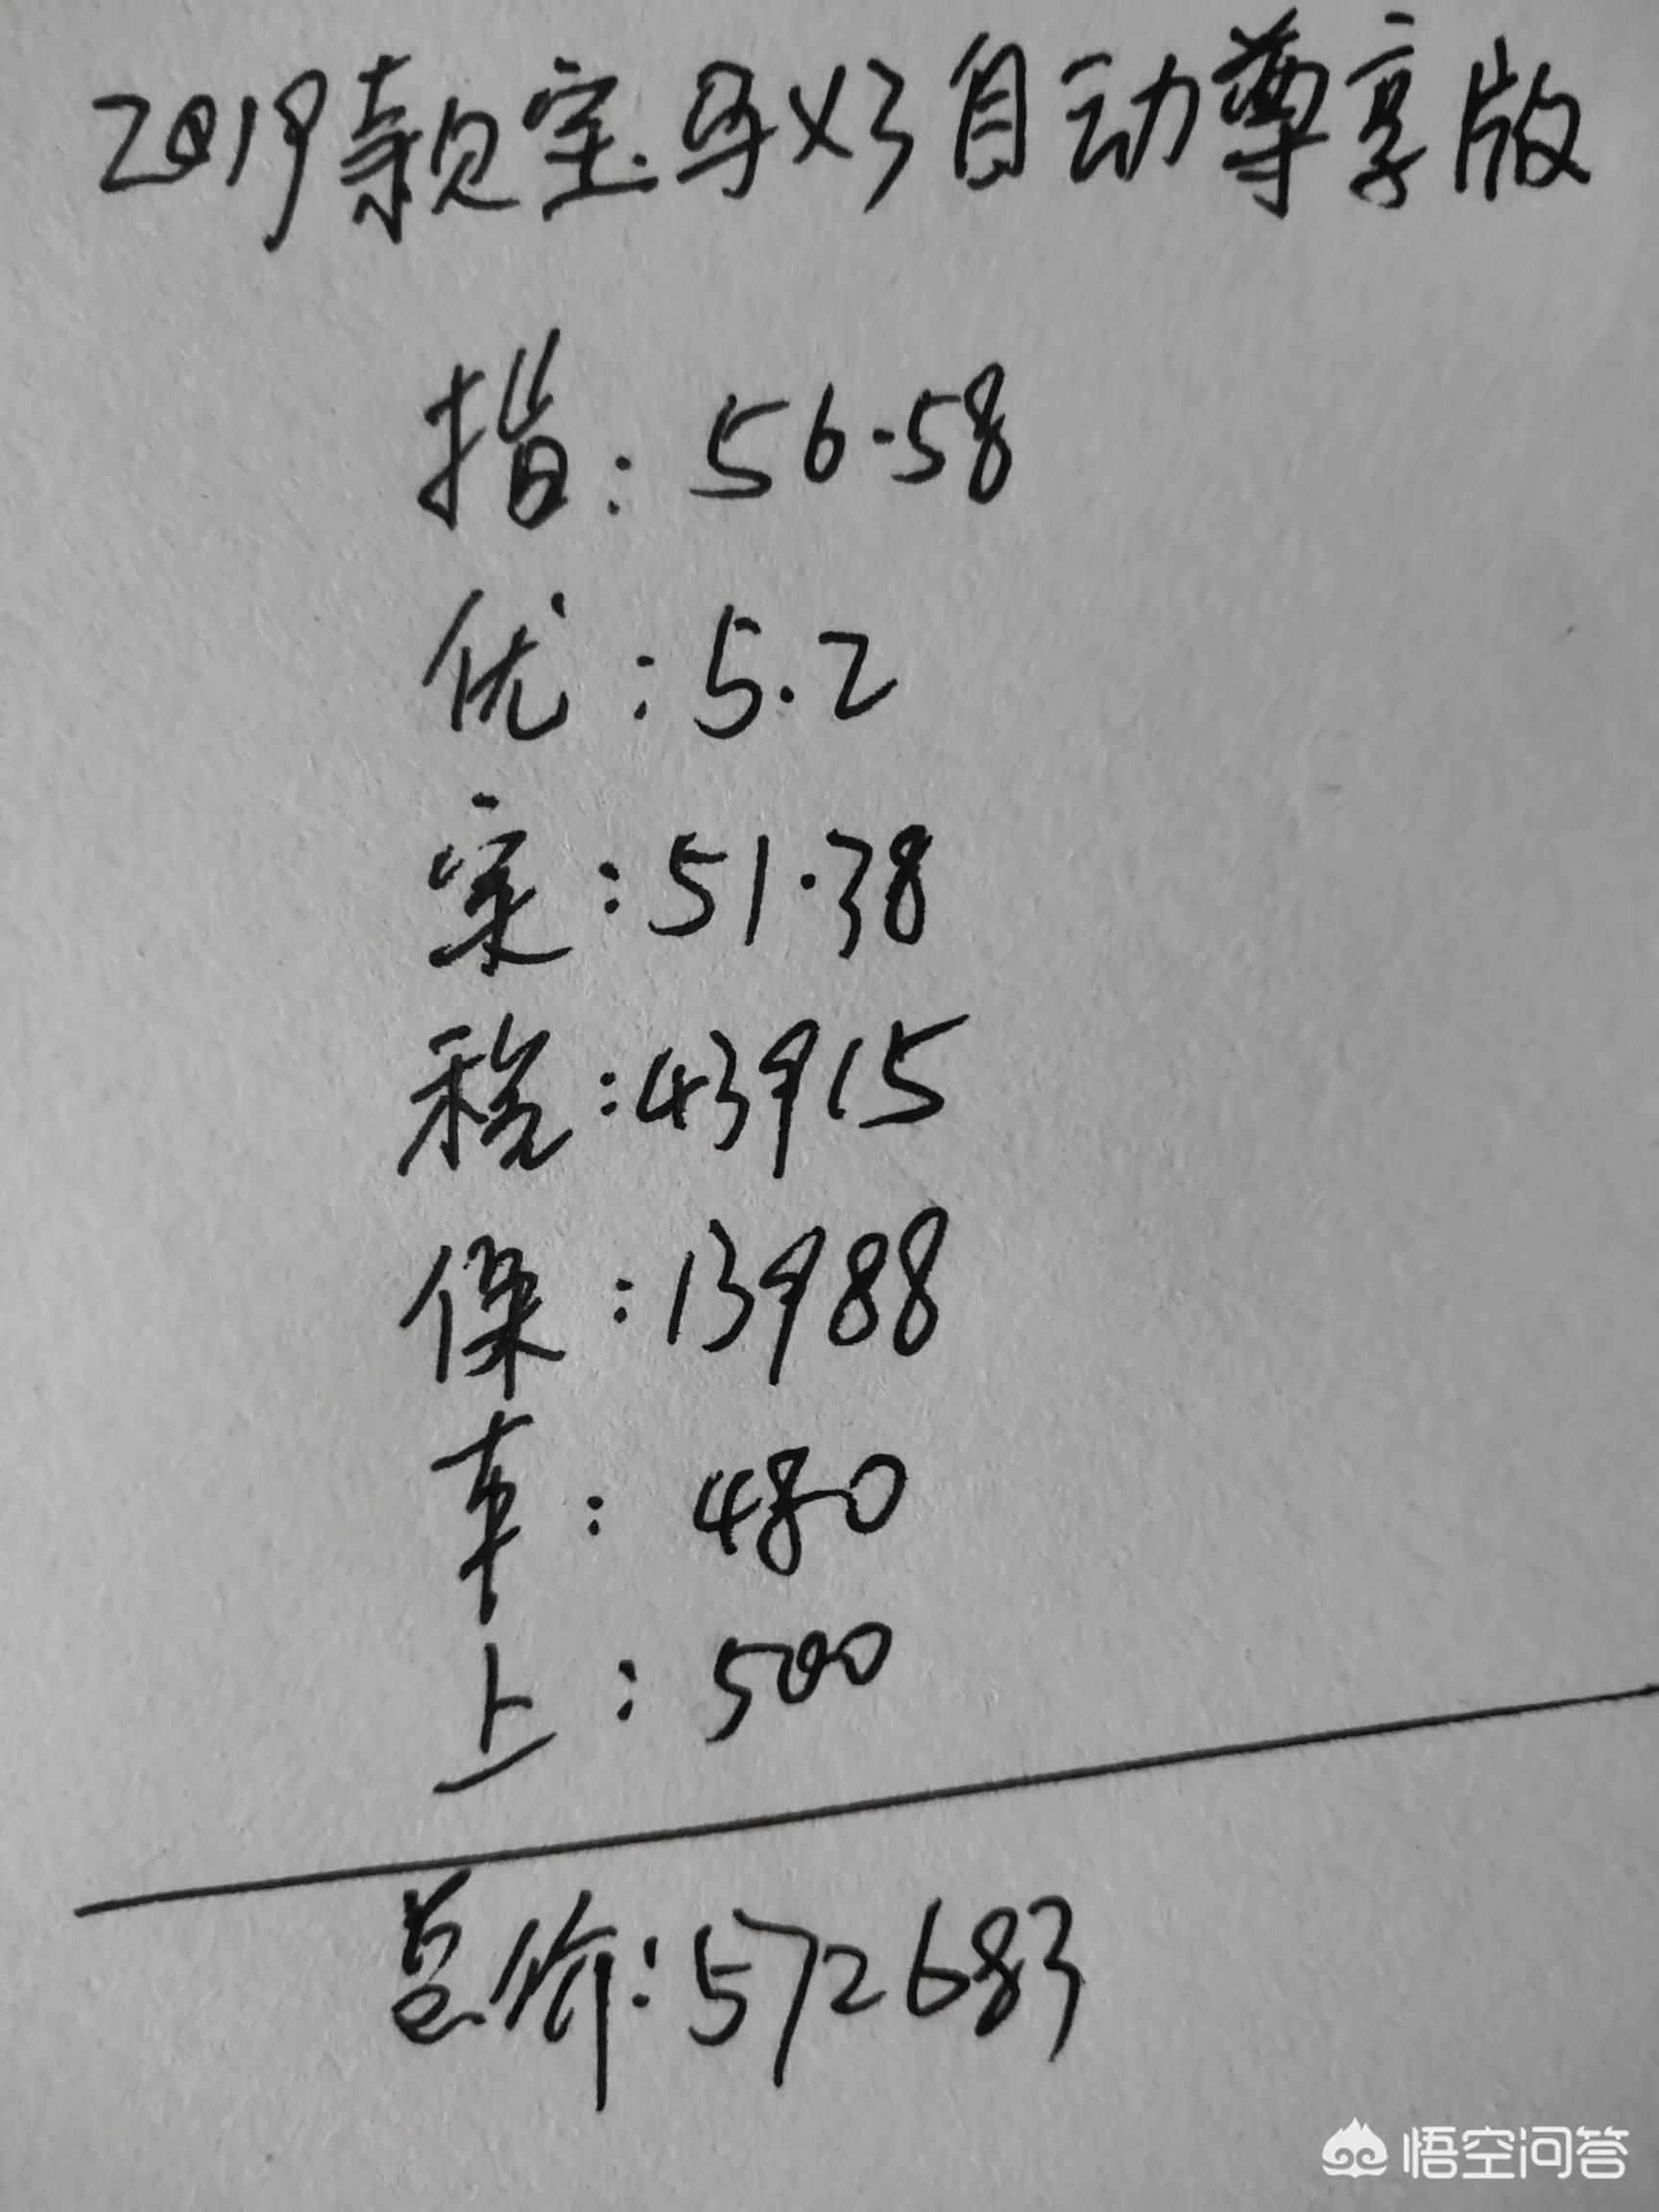 2019款宝马X3自动尊享版
指：56.58
优：5.2
实：51.38
税：43915
保：13988
车：480
上：500
总价：572683
悟空问答